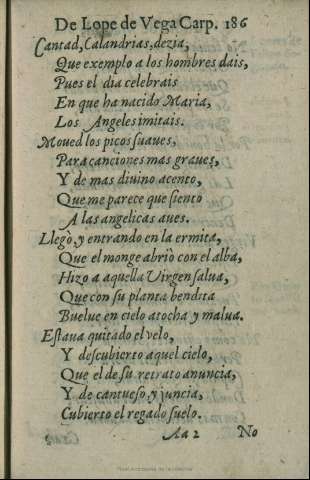 De Lope de Vega Carp. 186
Cantad, Calandrias, dezia,
Que exemplo a los hombres dais,
Pues el dia celebrais
En que ha nacido Maria,
Los Angeles imitais.
Moued los picos suaues,
Para canciones mas graues,
Y de mas diuino acento,
Que me parece que siento
A las angelicas aues.
Llegò, y entrando en la ermita,
Que el monge abriò con el alba,
Hizo a aquella Virgen salua,
Que con su planta bendita
Buelue en cielo atocha y malua.
Estaua quitado el velo,
Y descubierto aquel cielo,
Que el de su retrato anuncia,
Y de cantueso, y juncia,
Cubierto el regado suelo.
Aa 2 No